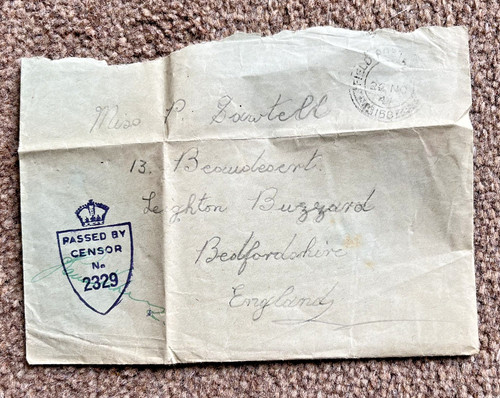 FIELD POST
Miss P. Sawtell
13. Beaudesert.
Leighton Buzzard
Bedfordshire
England
PASSED BY
CENSOR
No
2329